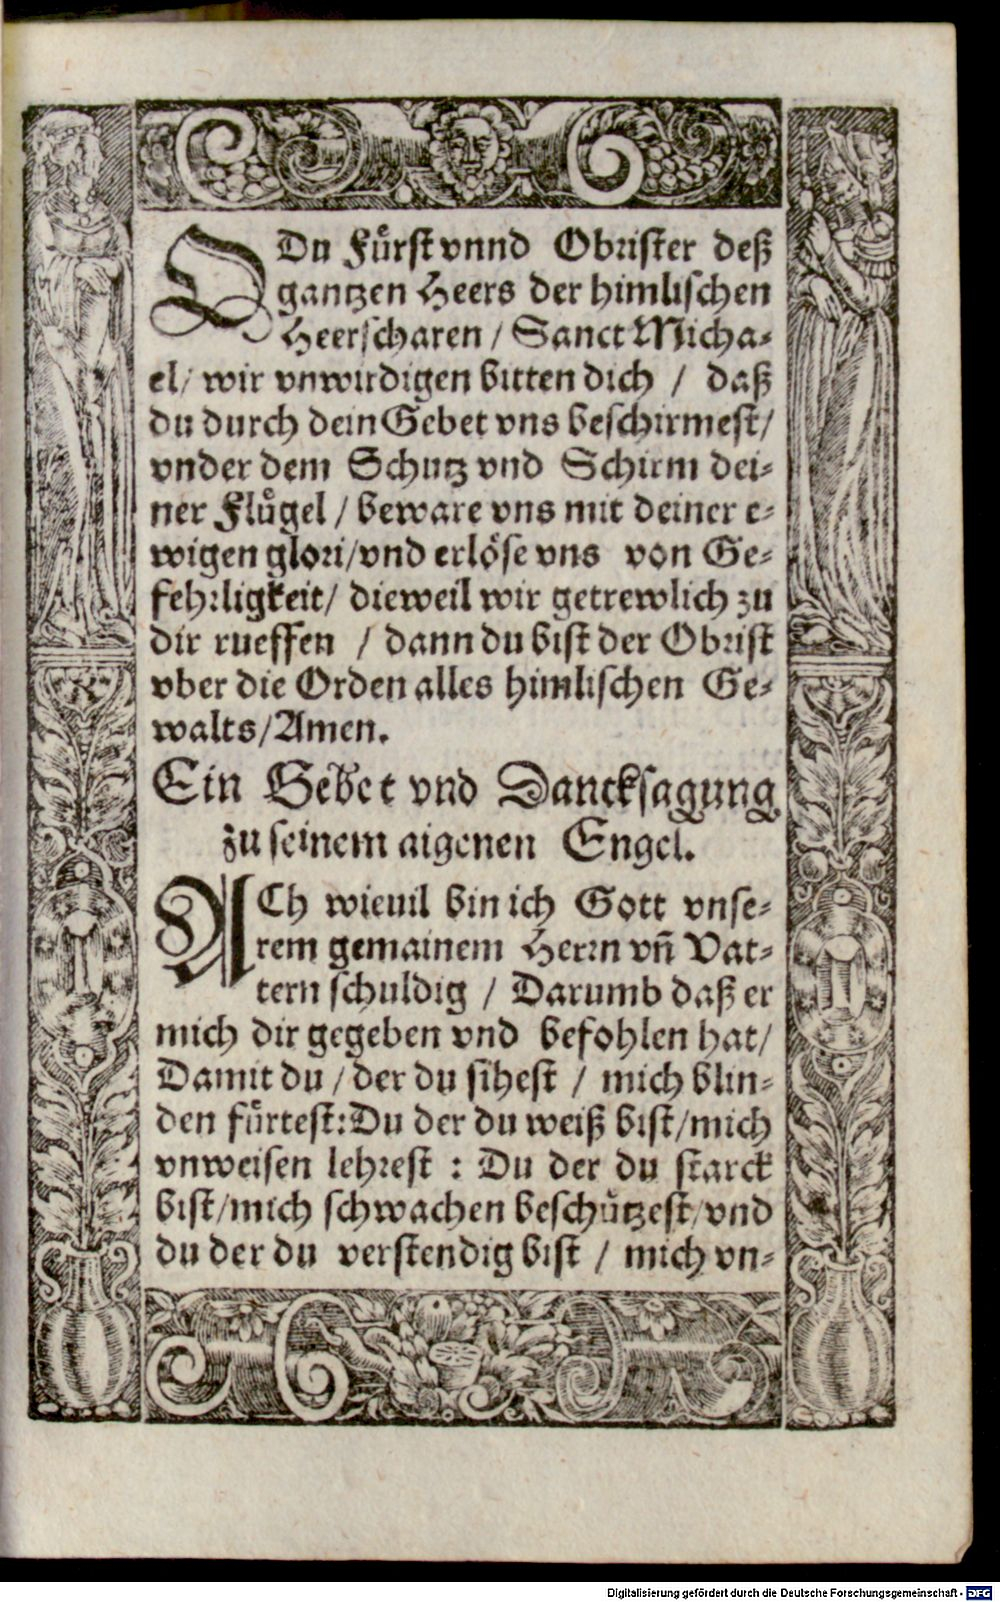 ODu Fürst vnnd Obrister deß
gantzen Heers der himlischen
Heerscharen / Sanct Micha-
el / wir vnwirdigen bitten dich / daß
du durch dein Gebet vns beschirmest /
vnder dem Schutz vnd Schirm dei-
ner Flügel / beware vns mit deiner e-
wigen glori / vnd erlöse vns von Ge-
fehrligkeit / dieweil wir getrewlich zu
dir rueffen / dann du bist der Obrist
vber die Orden alles himlischen Ge-
walts / Amen.
Ein Gebet vnd Dancksagung
zu seinem aigenen Engel.
ACh wieuil bin ich Gott vnse-
rem gemainem Herrn vñ Vat-
tern schuldig / Darumb daß er
mich dir gegeben vnd befohlen hat /
Damit du / der du sihest / mich blin-
den fürtest: Du der du weiß bist / mich
vnweisen lehrest : Du der du starck
bist / mich schwachen beschützest / vnd
du der du verstendig bist / mich vn-
Digitalisierung gefördert durch die Deutsche Forschungsgemeinschaft - DFG